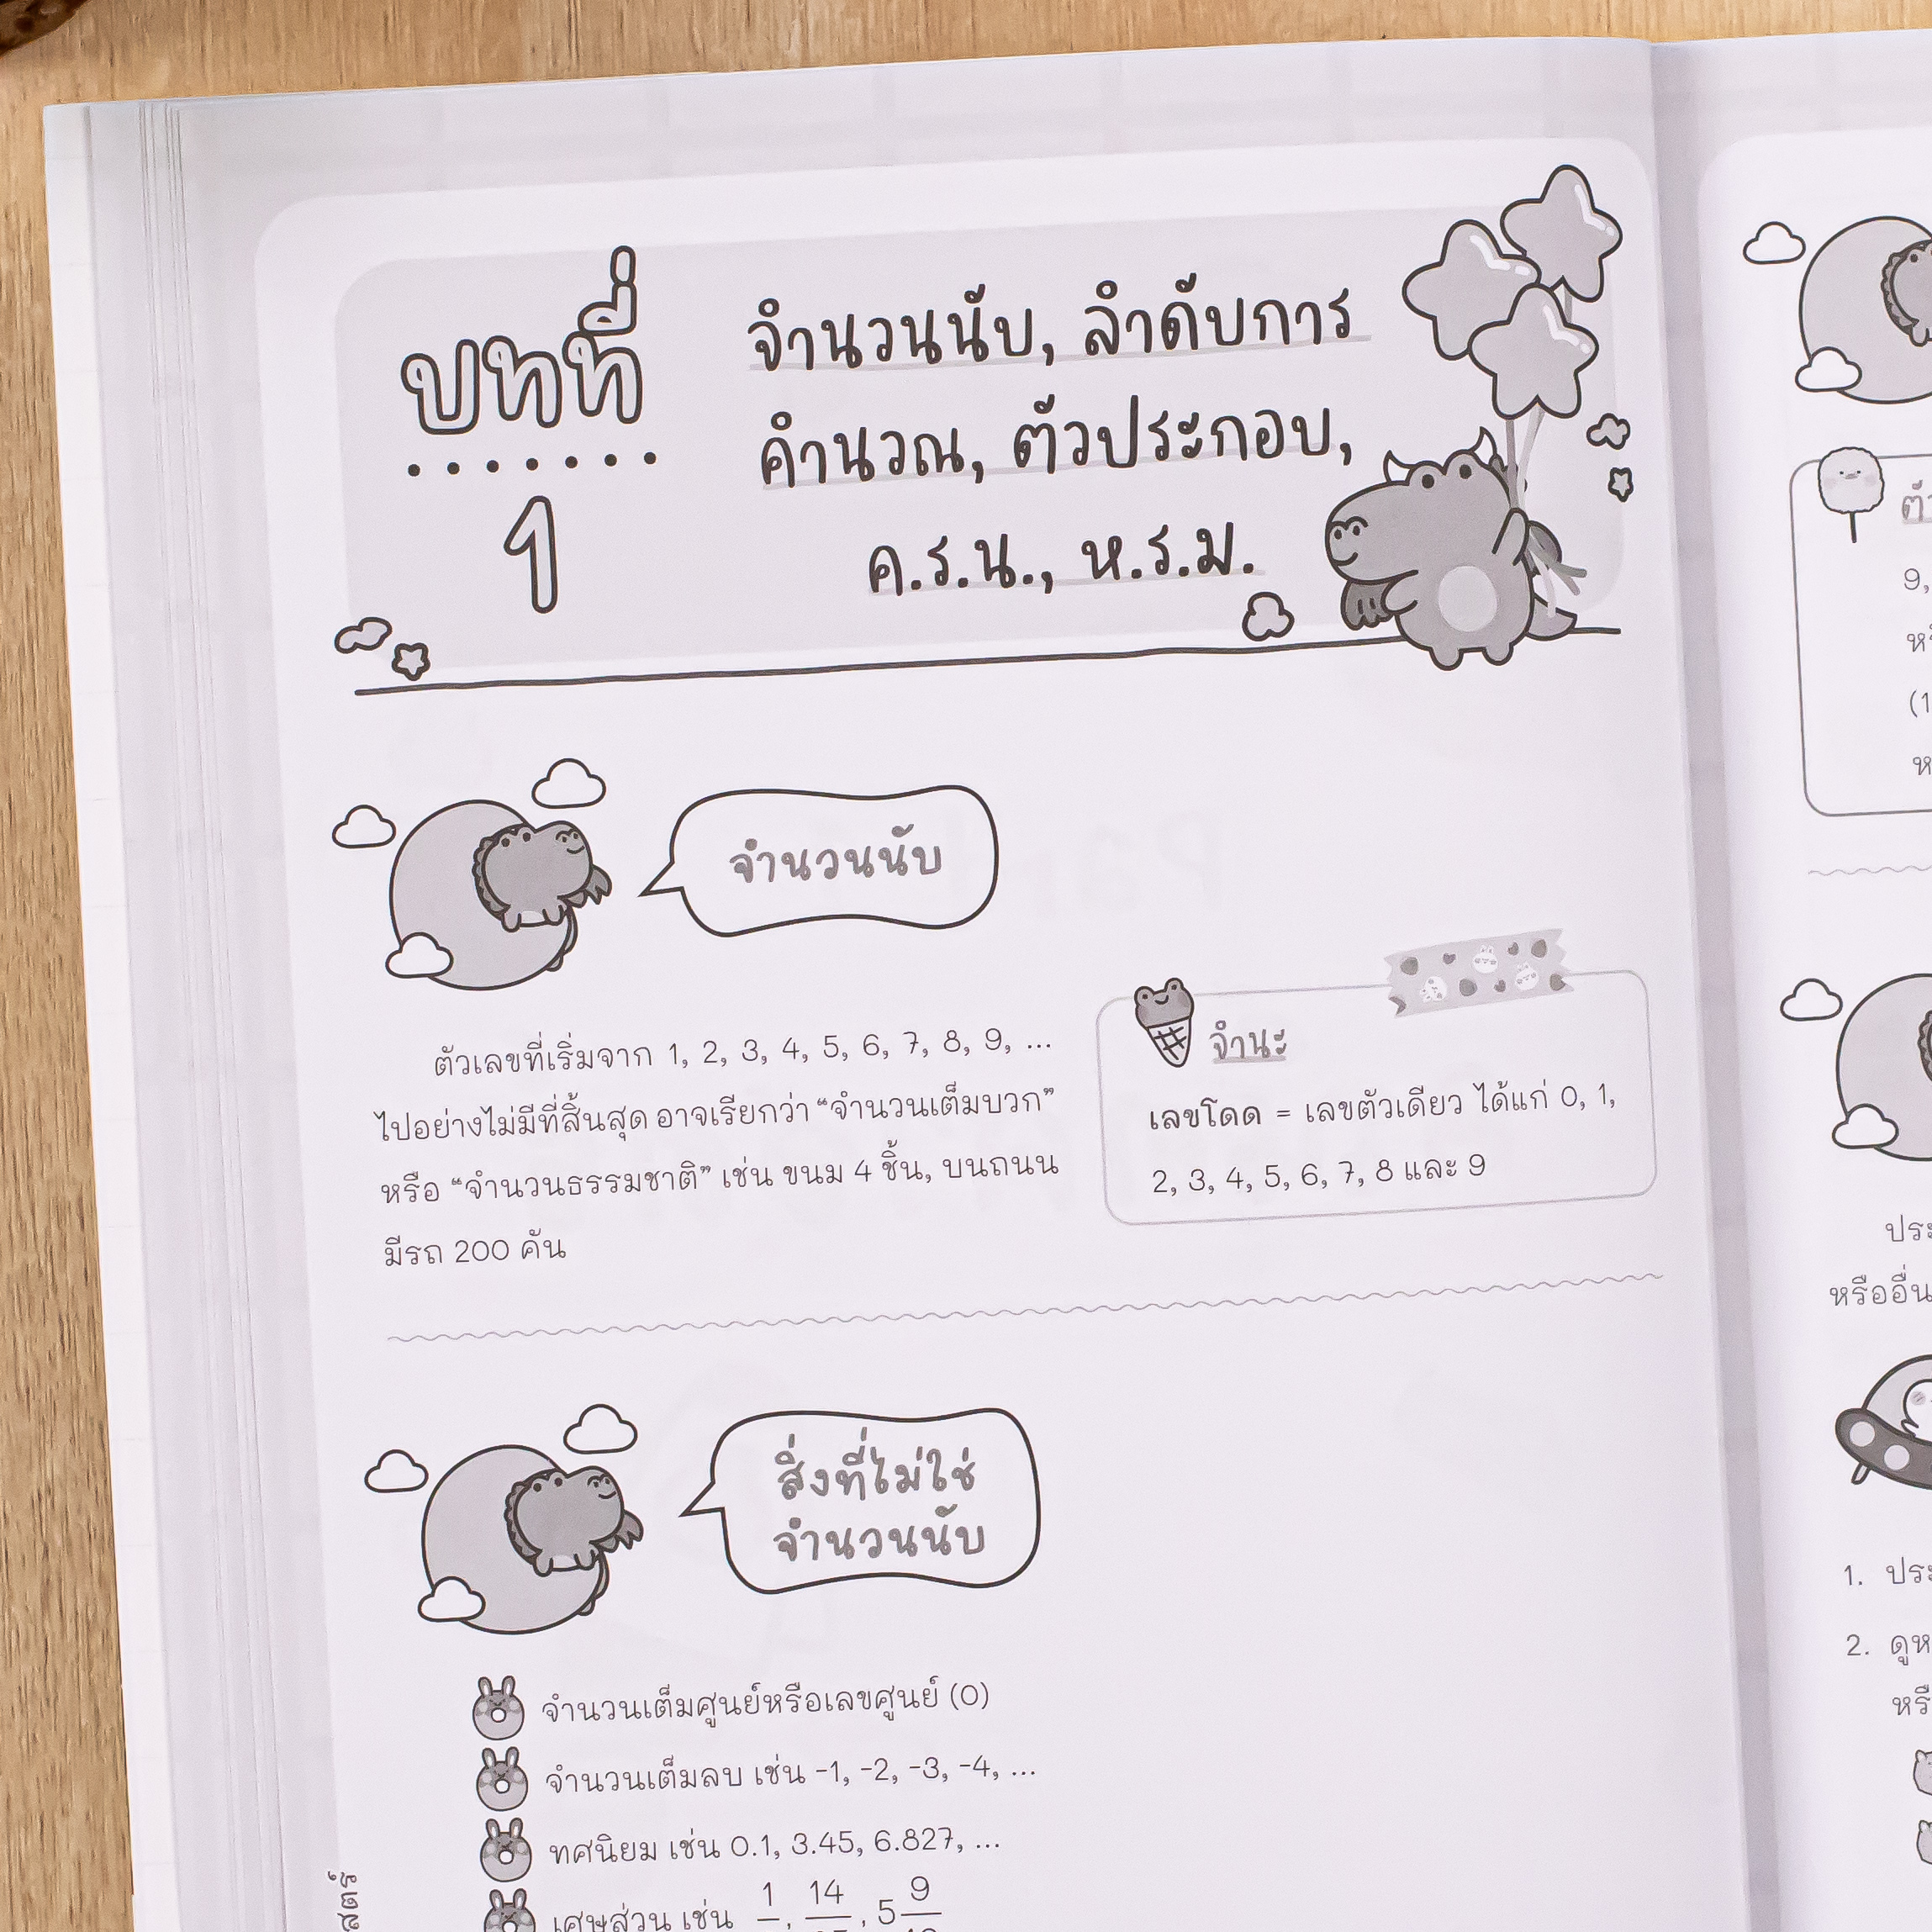 บทที่
1
จำนวนนับ, ลำดับการ
คำนวณ, ตัวประกอบ,
ค.ร.น., ห.ร.ม.
จำนวนนับ
ตัวเลขที่เริ่มจาก 1, 2, 3, 4, 5, 6, 7, 8, 9, ...
ไปอย่างไม่มีที่สิ้นสุด อาจเรียกว่า “จำนวนเต็มบวก”
หรือ “จำนวนธรรมชาติ” เช่น ขนม 4 ชิ้น, บนถนน
มีรถ 200 คัน
จำนะ
เลขโดด = เลขตัวเดียว ได้แก่ 0, 1,
2, 3, 4, 5, 6, 7, 8 และ 9
สิ่งที่ไม่ใช่
จำนวนนับ
จำนวนเต็มศูนย์หรือเลขศูนย์ (0)
จำนวนเต็มลบ เช่น -1, -2, -3, -4, ...
ทศนิยม เช่น 0.1, 3.45, 6.827, ...
เศษส่วน เช่น 1 , 14 , 5 9
9,
(1
หรืออื่น
1. ประ
2.